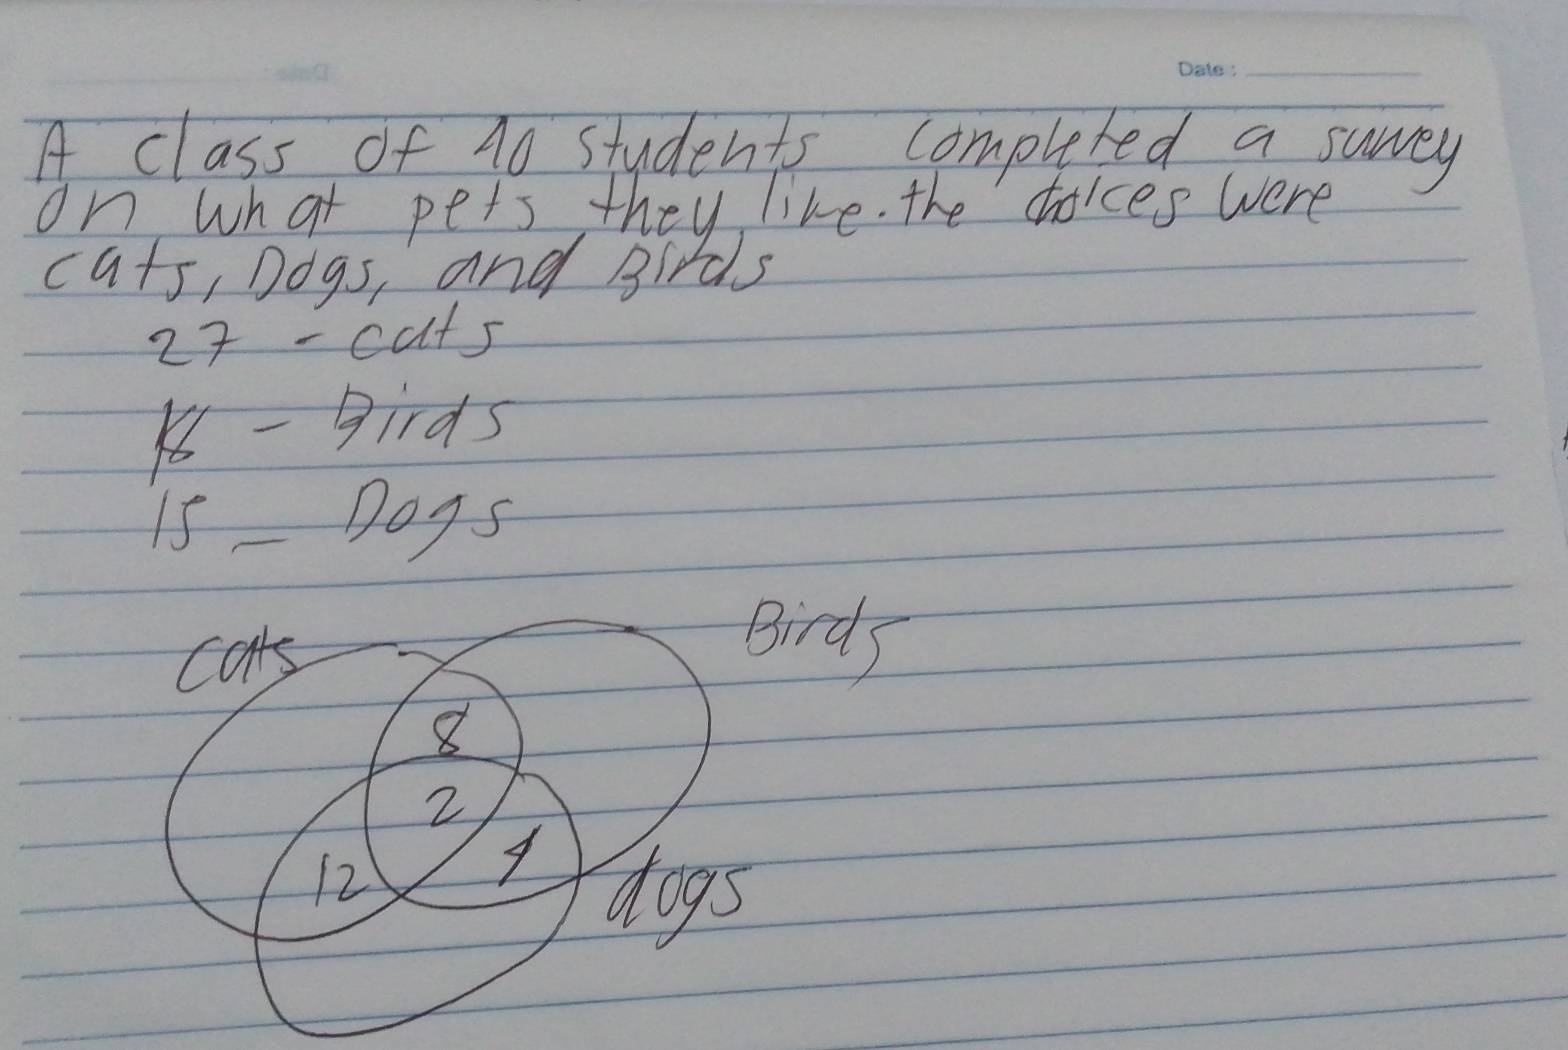 Date:
A class of 40 students completed a survey
on what pets they like. the choices were
cats, Dogs, and Birds
27 - cats
- Birds
15 - Dogs
cats
Birds
8
2
12
dogs